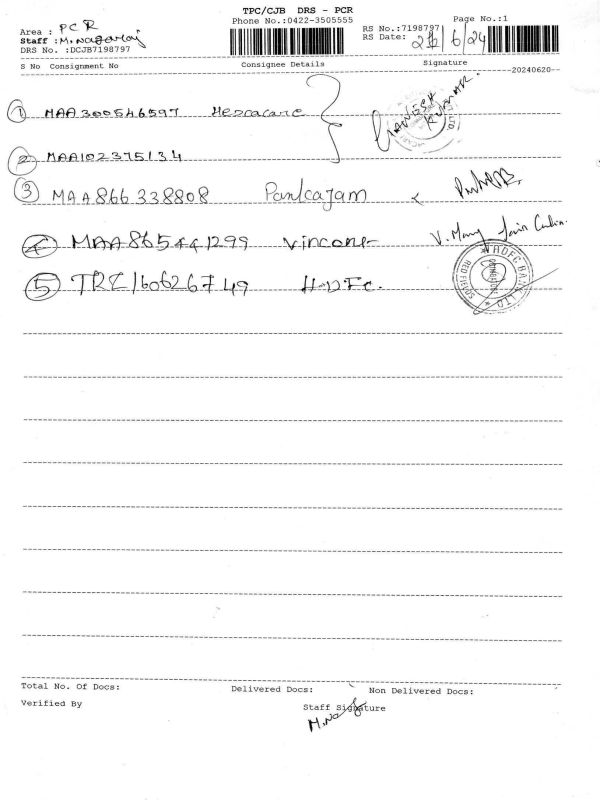 TPC/CJB DRS - PCR
Phone No.:0422-3505555
Page No.:1
Area : PCR
Staff : M. Nagaraj
DRS No. :DCJB7198797
RS No.:7198797
RS Date: 21/6/24
S No Consignment No Consignee Details Signature
--20240620--
① MAA300546597
GANESH KUMAR.
② MAA102375134
③ MAA866338808 Pankajam
④ MAA865441299 Vincone
⑤ TRZ160626749 HDFC.
HDFC BANK LTD
Total No. Of Docs: Delivered Docs: Non Delivered Docs:
Verified By Staff Signature